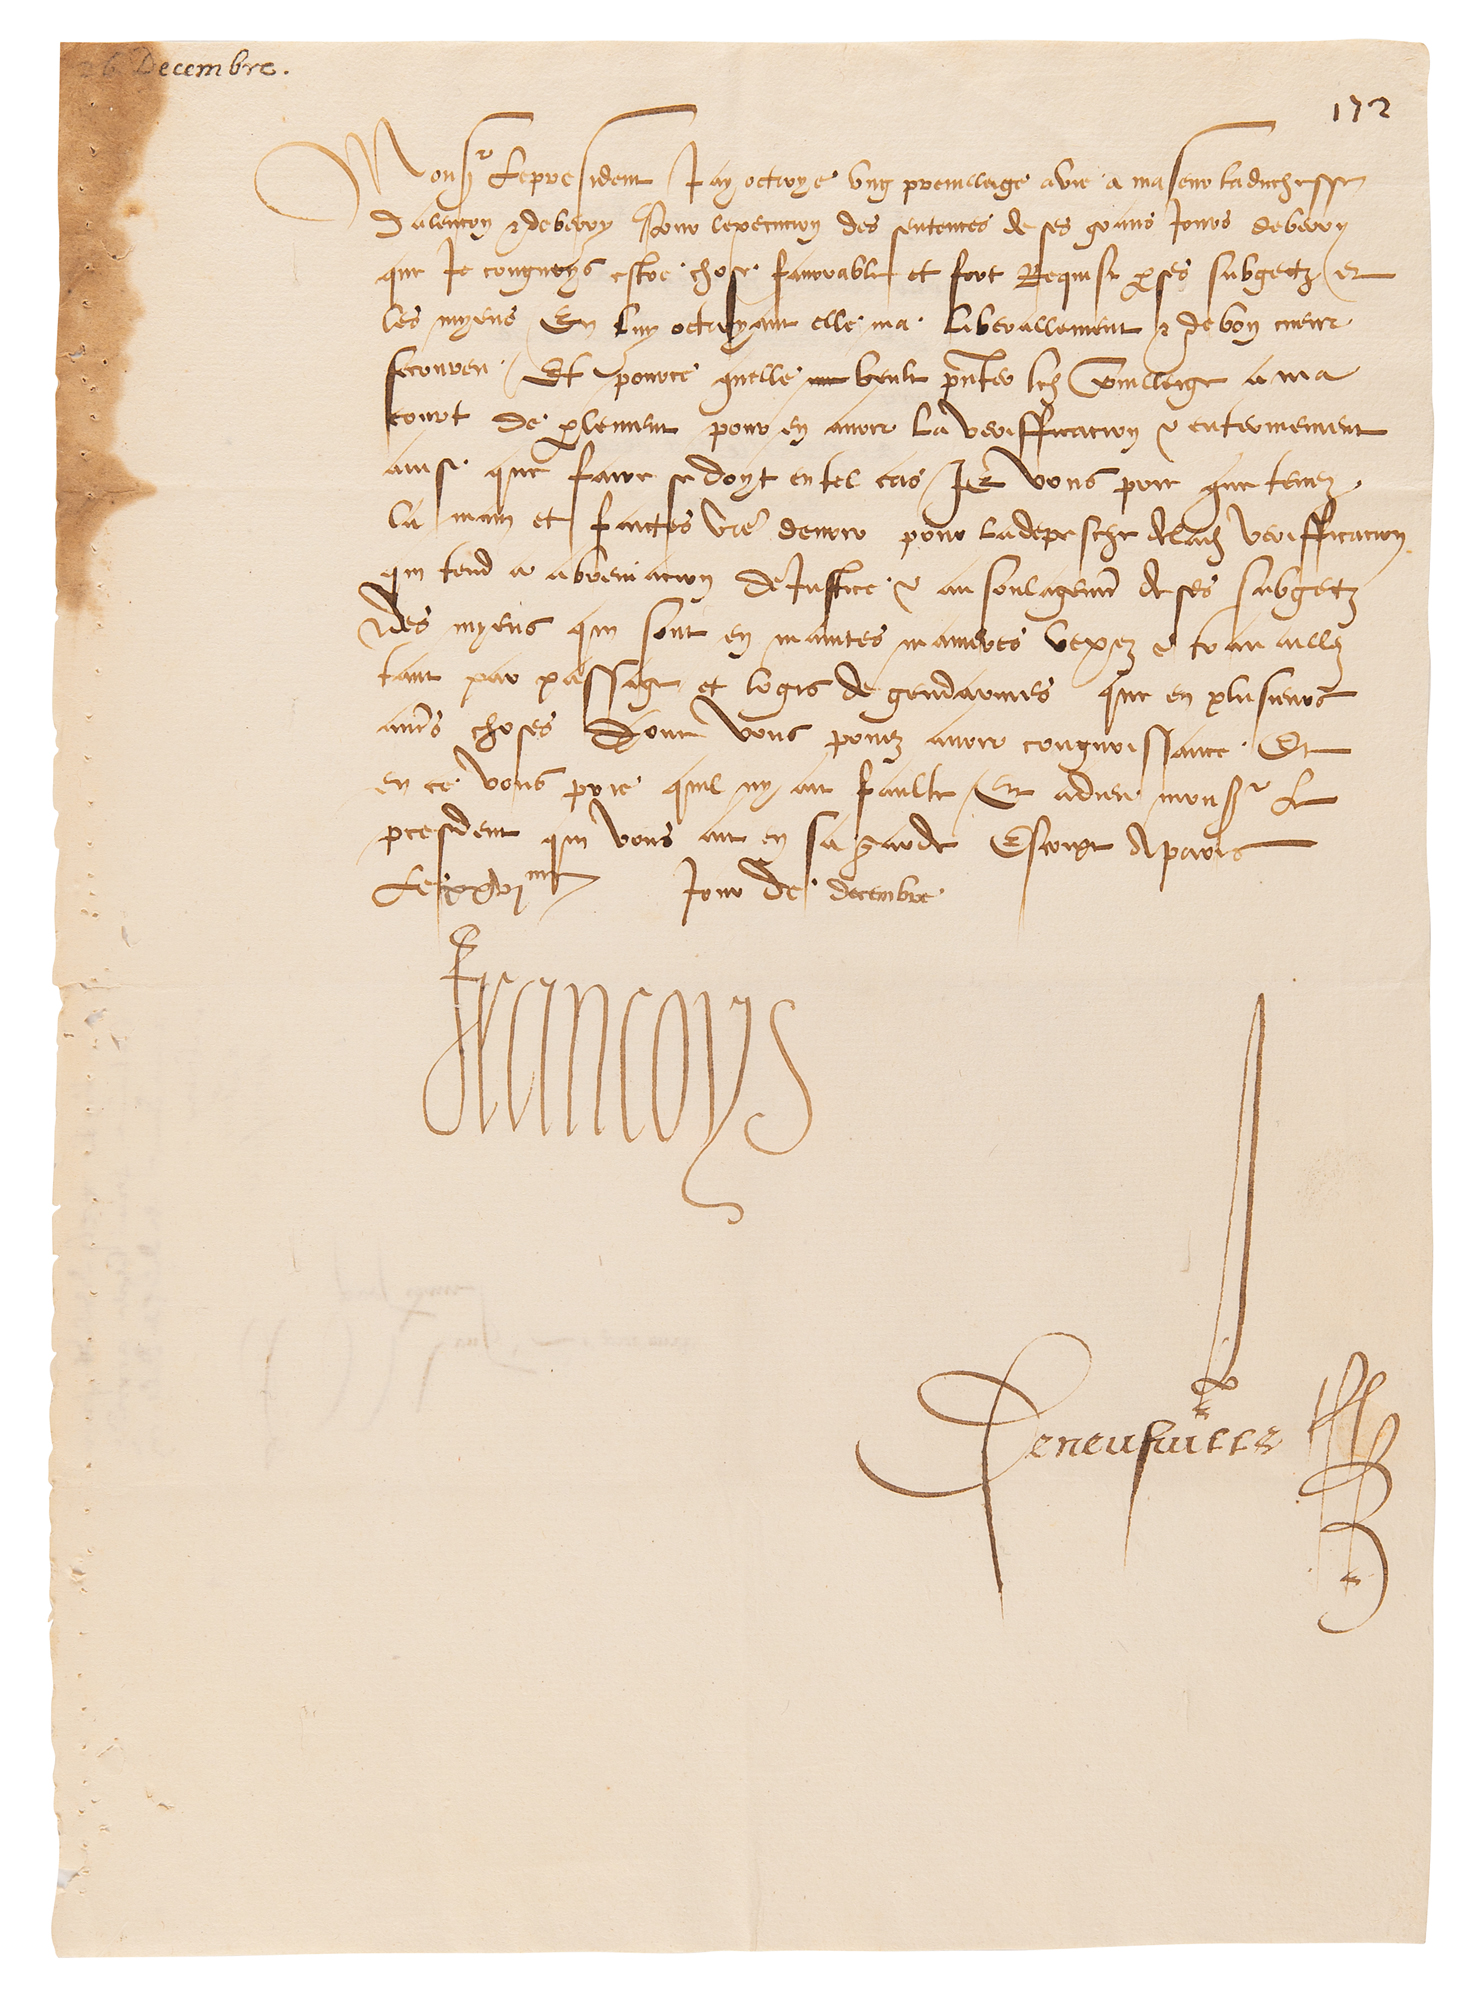 26 Decembre.
172
Monsr le president Jay octroye ung previleige a vie a ma seur la duchesse
dalencon & de berry pour lexecucion des sentences de ses grans Jours de berry
que Je congnoys estre chose favorable et fort Requise p ses subgectz et
les myens En luy octroyant elle ma liberallement & de bon cueur
secouru Et pource quelle veult pnter led previleige a ma
court de plement pour en avoir la verifficacion & enterinement
ainsi que faire se doyt en tel cas Je vous prie que tenez
la main et faictes vre devoir pour la depesche de lad verifficacion
qui tend a abreviacion de Justice & au soulagemt de ses subgectz
& des myens qui sont en maintes manieres vexez & travaillez
tant par passaige et logis de gendarmes que en plusieurs
aut's choses dont vous pouez avoir congnoissance Et
en ce vous prie quil ny ait faulte Et adieu monsr le
president qui vous ait en sa garde Escript A paris
Le xxvime Jour de decembre
Francoys
Deneufville